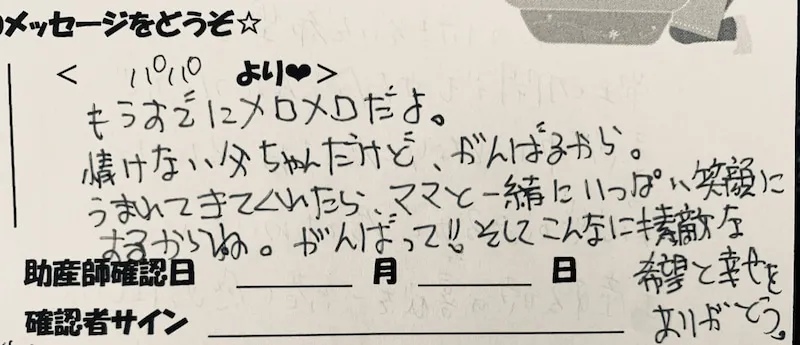 メッセージをどうぞ☆
＜ パパ より❤＞
もうすでにメロメロだよ。
情けない父ちゃんだけど、がんばるから。
うまれてきてくれたら、ママと一緒にいっぱい笑顔に
するからね。がんばって!! そしてこんなに素敵な
希望と幸せを
ありがとう。
助産師確認日 ＿＿＿ 月 ＿＿＿ 日
確認者サイン ＿＿＿＿＿＿